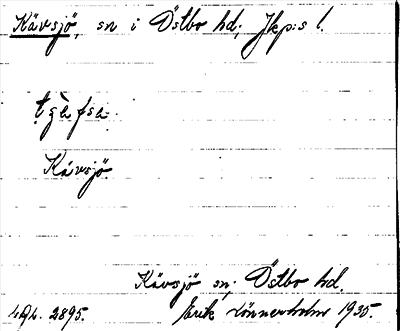 Kävsjö, sn i Östbo hd, Jkp:s l.
Kävsjö
Kävsjö sn, Östbo hd.
Erik Lönnerholm 1935.
2895.